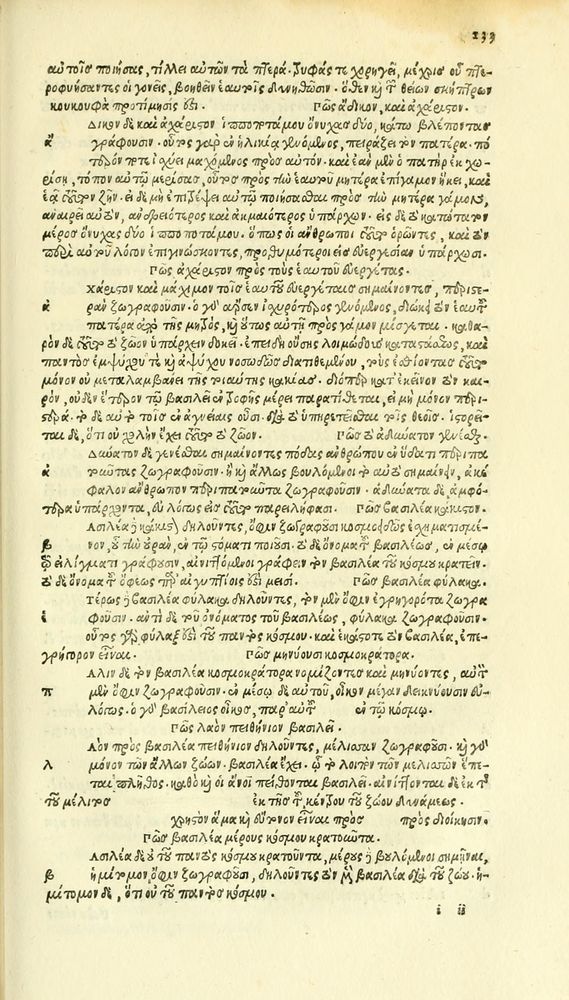 133
αὐτοῖσ ποιήσας, τίλλει αὐτῶν τὰ πτερά. τροφάς τε χορηγεῖ, μέχρις οὗ πτε-
ροφυήσαντες οἱ γονεῖς, βοηθεῖν ἑαυτοῖς δυνηθῶσιν. ὅθεν καὶ τῶν θείων σκήπτρων
κουκουφὰ προτίμησίς ἐστι. Πῶς ἄδικον, καὶ ἀχάριστον.
Δικον δὲ καὶ ἀχάριστον ἱπποποτάμου ὄνυχας δύο, κάτω βλέποντας
α γράφουσιν. οὗτος γὰρ ἐν ἡλικίᾳ γενόμενος, πειράζει τὸν πατέρα. πό
τερον ποτε ἰσχύει μαχόμενος πρὸς αὐτόν. καὶ ἐὰν μὲν ὁ πατὴρ ἐκχω-
ρήσῃ, τόπον αὐτῷ μερίσας, οὗτος πρὸς τὴν ἑαυτοῦ μητέρα ἐπὶ γάμον ἥκει, καὶ
ἐᾷ τοῦτον ζῆν. εἰ δὲ μὴ ἐπιτρέψει αὐτῷ ποιήσασθαι πρὸς τὴν μητέρα γάμον,
ἀναιρεῖ αὐτὸν, ἀνδρειότερος καὶ ἀκμαιότερος ὑπάρχων. εἰς δὲ τὸ κατώτατον
μέρος ὄνυχας δύο ἱπποποτάμου. ὅπως οἱ ἄνθρωποι τοῦτο ὁρῶντες, καὶ τὸν
περὶ αὐτοῦ λόγον ἐπιγινώσκοντες, προθυμότεροι εἰς εὐεργεσίαν ὑπάρχωσι.
Πῶς ἀχάριστον πρὸς τοὺς ἑαυτοῦ εὐεργέτας.
χάριστον καὶ μάχιμον τοῖς ἑαυτοῦ εὐεργέταις σημαίνοντες, περιστε-
α ρὰν ζωγραφοῦσιν. ὁ γὰρ ἄρσην ἰσχυρότερος γενόμενος, διώκει τὸν ἑαυτοῦ
πατέρα ἀπὸ τῆς μητρός, καὶ οὕτως αὐτῇ πρὸς γάμον μίσγεται. καθα-
ρὸν δὲ τὸ ζῶον ὑπάρχειν δοκεῖ. ἐπειδὴ οὔσης λοιμώδους καταστάσεως, καὶ
παντὸς ἐμψύχου τε καὶ ἀψύχου νοσωδῶς διατιθεμένου, τοὺς ἐσθίοντας τοῦτο
μόνον οὐ μεταλαμβάνει τῆς τοιαύτης κακίας. διόπερ κατ' ἐκεῖνον τὸν και-
ρὸν, οὐδὲν ἕτερον τῷ βασιλεῖ ἐν τροφῆς μέρει παρατίθεται, εἰ μὴ μόνον περι-
στερά. τὸ δὲ αὐτὸ τοῖς ἐν ἁγνείαις οὖσι. διὰ τὸ ὑπηρετεῖσθαι τοῖς θεοῖς. ἱστορεῖ-
ται δὲ, ὅτι οὐ χολὴν ἔχει τοῦτο τὸ ζῶον. Πῶς τὸ ἀδύνατον γενέσθαι.
Δύνατον δὲ γενέσθαι σημαίνοντες πόδας ἀνθρώπου ἐν ὕδατι περιπα
α τοῦντας ζωγραφοῦσιν. ἢ καὶ ἄλλως βουλόμενοι τὸ αὐτὸ σημαίνειν, ἀκέ
φαλον ἄνθρωπον περιπατοῦντα ζωγραφοῦσιν. ἀδύνατα δὲ ἀμφό-
τερα ὑπάρχοντα, εὐλόγως εἰς τοῦτο παρειλήφασι. Πῶς βασιλέα κάκιστον.
Ασιλέα δὲ κάκιστον δηλοῦντες, ὄφιν ζωγραφοῦσι κοσμοειδῶς ἐσχηματισμέ-
β νον, οὗ τὴν οὐρὰν, ἐν τῷ στόματι ποιοῦσι. τὸ δὲ ὄνομα τοῦ βασιλέως, ἐν μέσῳ
τῷ εἱλίγματι γράφουσιν, αἰνιττόμενοι γράφειν τὸν βασιλέα τοῦ κόσμου κρατεῖν.
τὸ δὲ ὄνομα τοῦ ὄφεως παρ' αἰγυπτίοις ἐστὶ μεισί. Πῶς βασιλέα φύλακα.
Τέρως δὲ βασιλέα φύλακα δηλοῦντες, τὸν μὲν ὄφιν ἐγρηγορότα ζωγρα
ε φοῦσιν. αὐτὶ δὲ τοῦ ὀνόματος τοῦ βασιλέως, φύλακα ζωγραφοῦσιν.
οὗτος γὰρ φύλαξ ἐστὶ τοῦ παντὸς κόσμου. καὶ ἑκάτοτε τὸν βασιλέα, ἐπε-
γρήγορον εἶναι. Πῶς μηνύουσι κοσμοκράτορα.
Αλιν δὲ τὸν βασιλέα κοσμοκράτορα νομίζοντες καὶ μηνύοντες, αὐτὸν
π μὲν ὄφιν ζωγραφοῦσιν. ἐν μέσῳ δὲ αὐτοῦ, οἶκον μέγαν δεικνύουσιν εὐ-
λόγως. ὁ γὰρ βασίλειος οἶκος, παρ' αὐτοῦ ἐν τῷ κόσμῳ.
Πῶς λαὸν πειθήνιον βασιλεῖ.
Αὸν πρὸς βασιλέα πειθήνιον δηλοῦντες, μέλισσαν ζωγραφοῦσι. καὶ γὰρ
λ μόνον τῶν ἄλλων ζώων. βασιλέα ἔχει. ᾧ τὸ λοιπὸν τῶν μελισσῶν ἕπε-
ται πλῆθος. καθὸ καὶ οἱ ἄνοι πείθονται βασιλεῖ. αἰνίττονται δὲ ἐκ τῆς
τοῦ μέλιτος ἐκ τῆς τοῦ κέντρου τοῦ ζώου δυνάμεως.
χρηστὸν ἅμα καὶ εὔτονον εἶναι πρὸς πρὸς διοίκησιν.
Πῶς βασιλέα μέρους κόσμου κρατοῦντα.
Ασιλέα δὲ οὐ τοῦ παντὸς κόσμου κρατοῦντα, μέρους δὲ βουλόμενοι σημῆναι,
β ἡμίτομον ὄφιν ζωγραφοῦσι, δηλοῦντες τὸν μὲν βασιλέα διὰ τοῦ ζώου. ἡ-
μίτομον δὲ, ὅτι οὐ τοῦ παντὸς κόσμου.
i ii